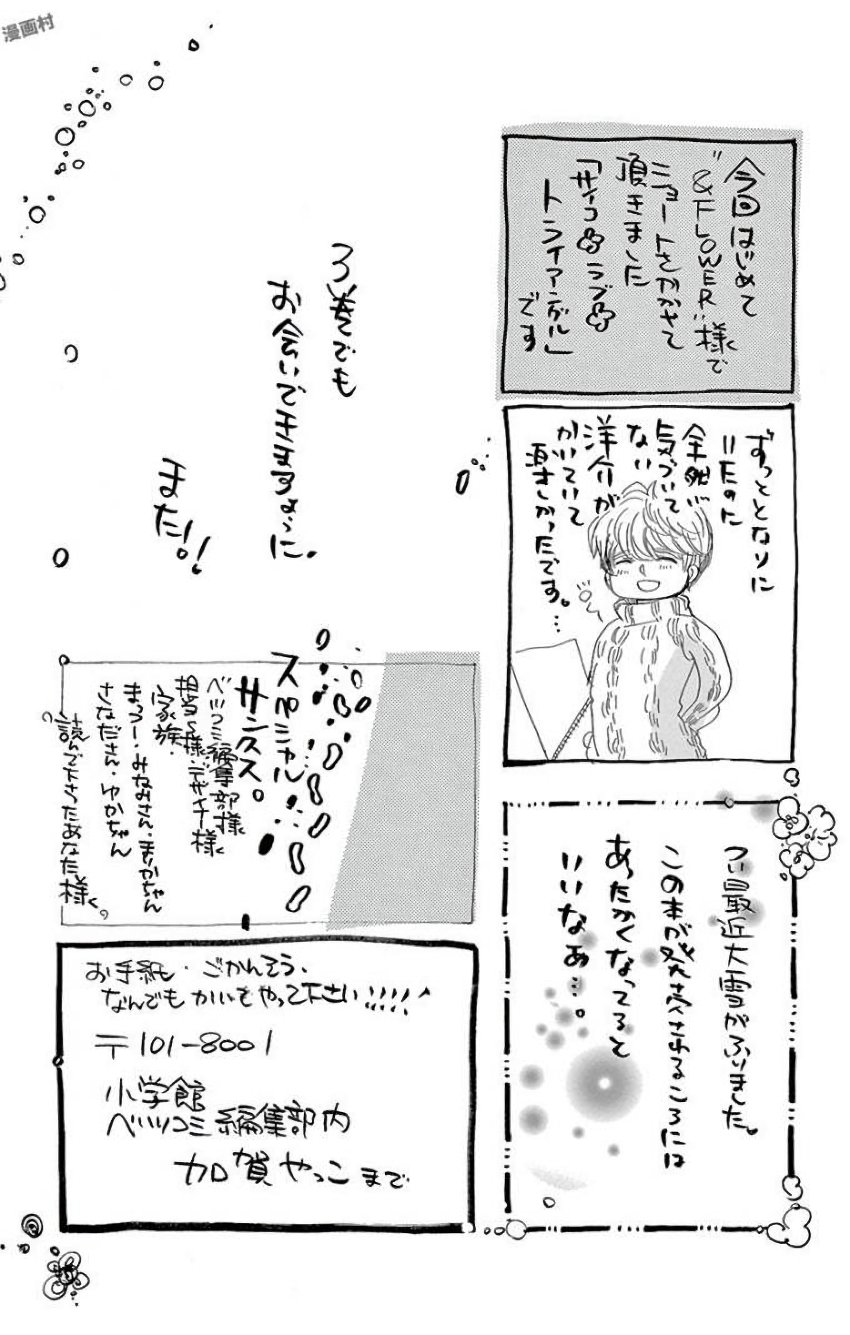 漫画村
今回はじめて
"&FLOWER"様で
ショートをかかさせて
頂きました
「サイコ ラブ
トライアングル」
です
ずっととなりに
いたのに
全然
気づいて
ない
洋介が
かいていて
楽しかったです。…
つい最近大雪がふりました。
この本が発売されるころには
あったかくなってると
いいなぁ…。
3巻でも
お会いできますように.
また!!
スペシャル
サンクス。
ベツコミ編集部様
担当S様・デザイナ様
家族・
まっつー・みなみさん・まりかちゃん
さなださん・ゆかちゃん
読んで下さったあなた様。
お手紙・ごかんそう・
なんでもかいをやって下さい!!!!!
〒101-8001
小学館
ベツコミ編集部内
加賀やっこまで